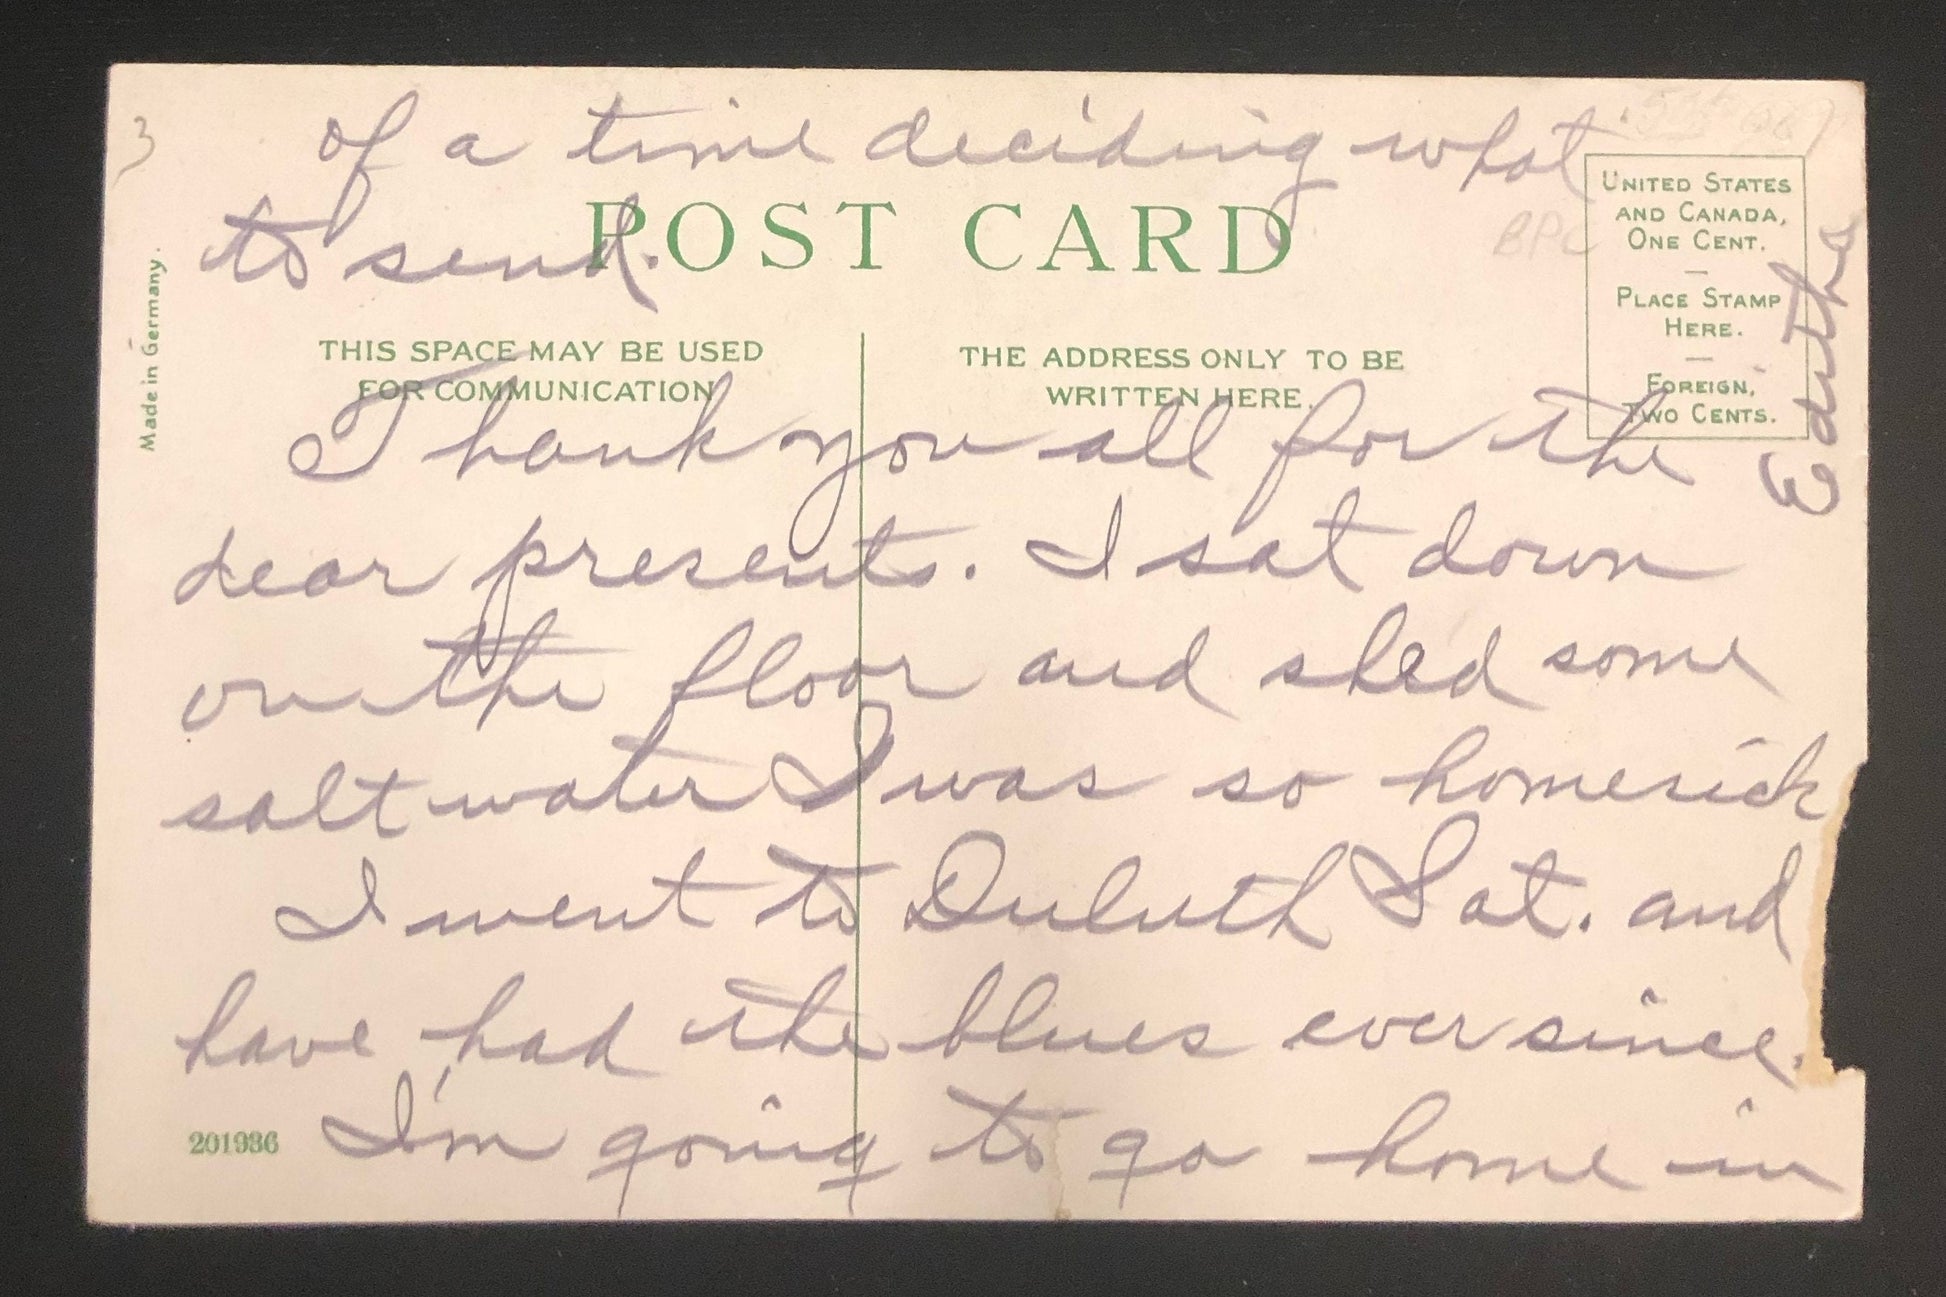 3
of a time deciding what
to send.
POST CARD
BPC
UNITED STATES
AND CANADA,
ONE CENT.
—
PLACE STAMP
HERE.
—
FOREIGN,
TWO CENTS.
Made in Germany.
THIS SPACE MAY BE USED
FOR COMMUNICATION
THE ADDRESS ONLY TO BE
WRITTEN HERE.
Thank you all for the
dear presents. I sat down
on the floor and shed some
salt water I was so homesick
I went to Duluth Sat. and
have had the blues ever since.
I'm going to go home in
201936
Ediths